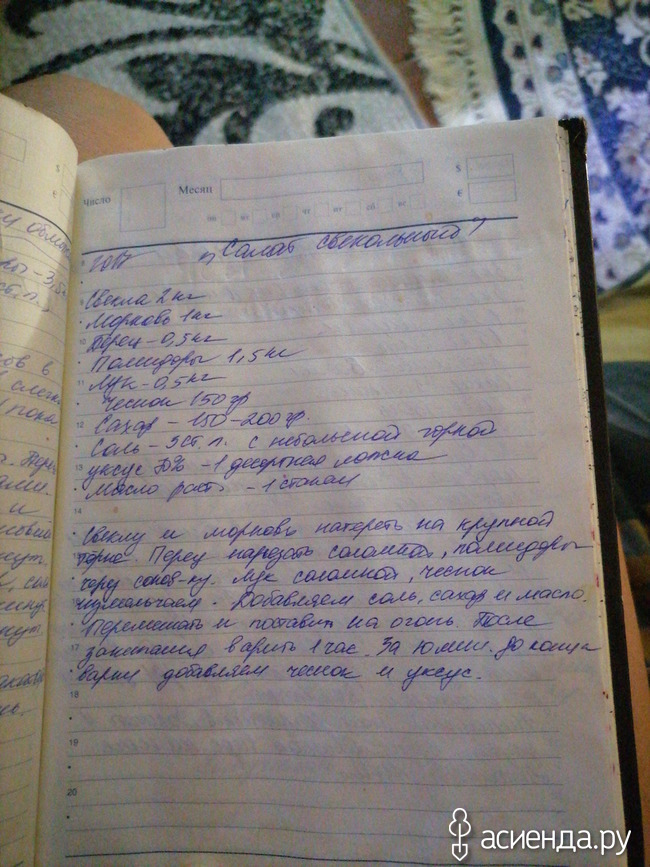 число
Месяц
$
€
пн вт ср чт пт сб вс
2017 "Салат свекольный"
Свекла 2 кг
Морковь 1 кг
Перец - 0,5 кг
Помидоры 1,5 кг
Лук - 0,5 кг
Чеснок 150 гр
Сахар - 150-200 гр.
Соль - 3 ст. л. с небольшой горкой
уксус 70% - 1 десертная ложка
Масло раст. - 1 стакан
Свеклу и морковь натереть на крупной
терке. Перец нарезать соломкой, помидоры
через соков-ку. Лук соломкой, чеснок
измельчаем. Добавляем соль, сахар и масло.
Перемешать и поставить на огонь. После
закипания варить 1 час. За 10 мин. до конца
варки добавляем чеснок и уксус.
9
10
11
12
13
14
15
16
17
18
19
20
асиенда.ру